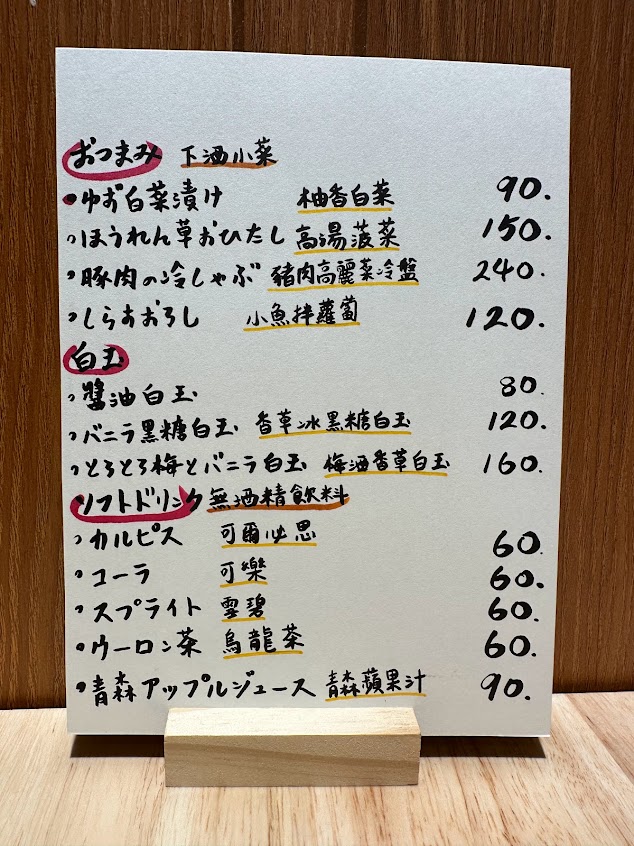 おつまみ 下酒小菜
・ゆず白菜漬け 柚香白菜 90.
・ほうれん草おひたし 高湯菠菜 150.
・豚肉の冷しゃぶ 豬肉高麗菜冷盤 240.
・しらすおろし 小魚拌蘿蔔 120.
白玉
・醬油白玉 80.
・バニラ黒糖白玉 香草冰黑糖白玉 120.
・とろとろ梅とバニラ白玉 梅酒香草白玉 160.
ソフトドリンク 無酒精飲料
・カルピス 可爾必思 60.
・コーラ 可樂 60.
・スプライト 雪碧 60.
・ウーロン茶 烏龍茶 60.
・青森アップルジュース 青森蘋果汁 90.